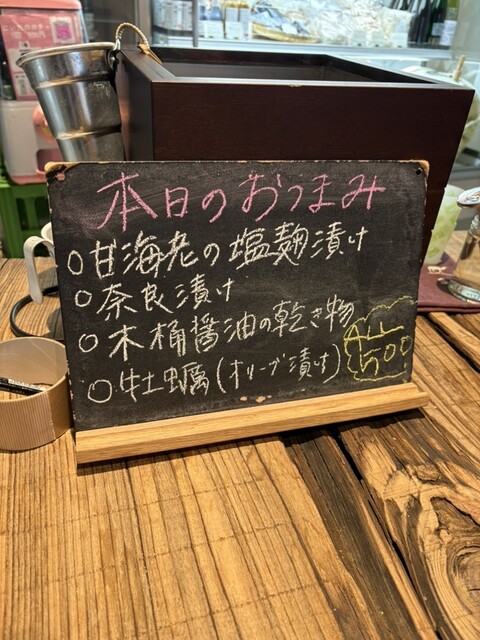 本日のおつまみ
○甘海老の塩麹漬け
○奈良漬け
○木桶醤油の乾き物
○牡蠣(オリーブ漬け)
500